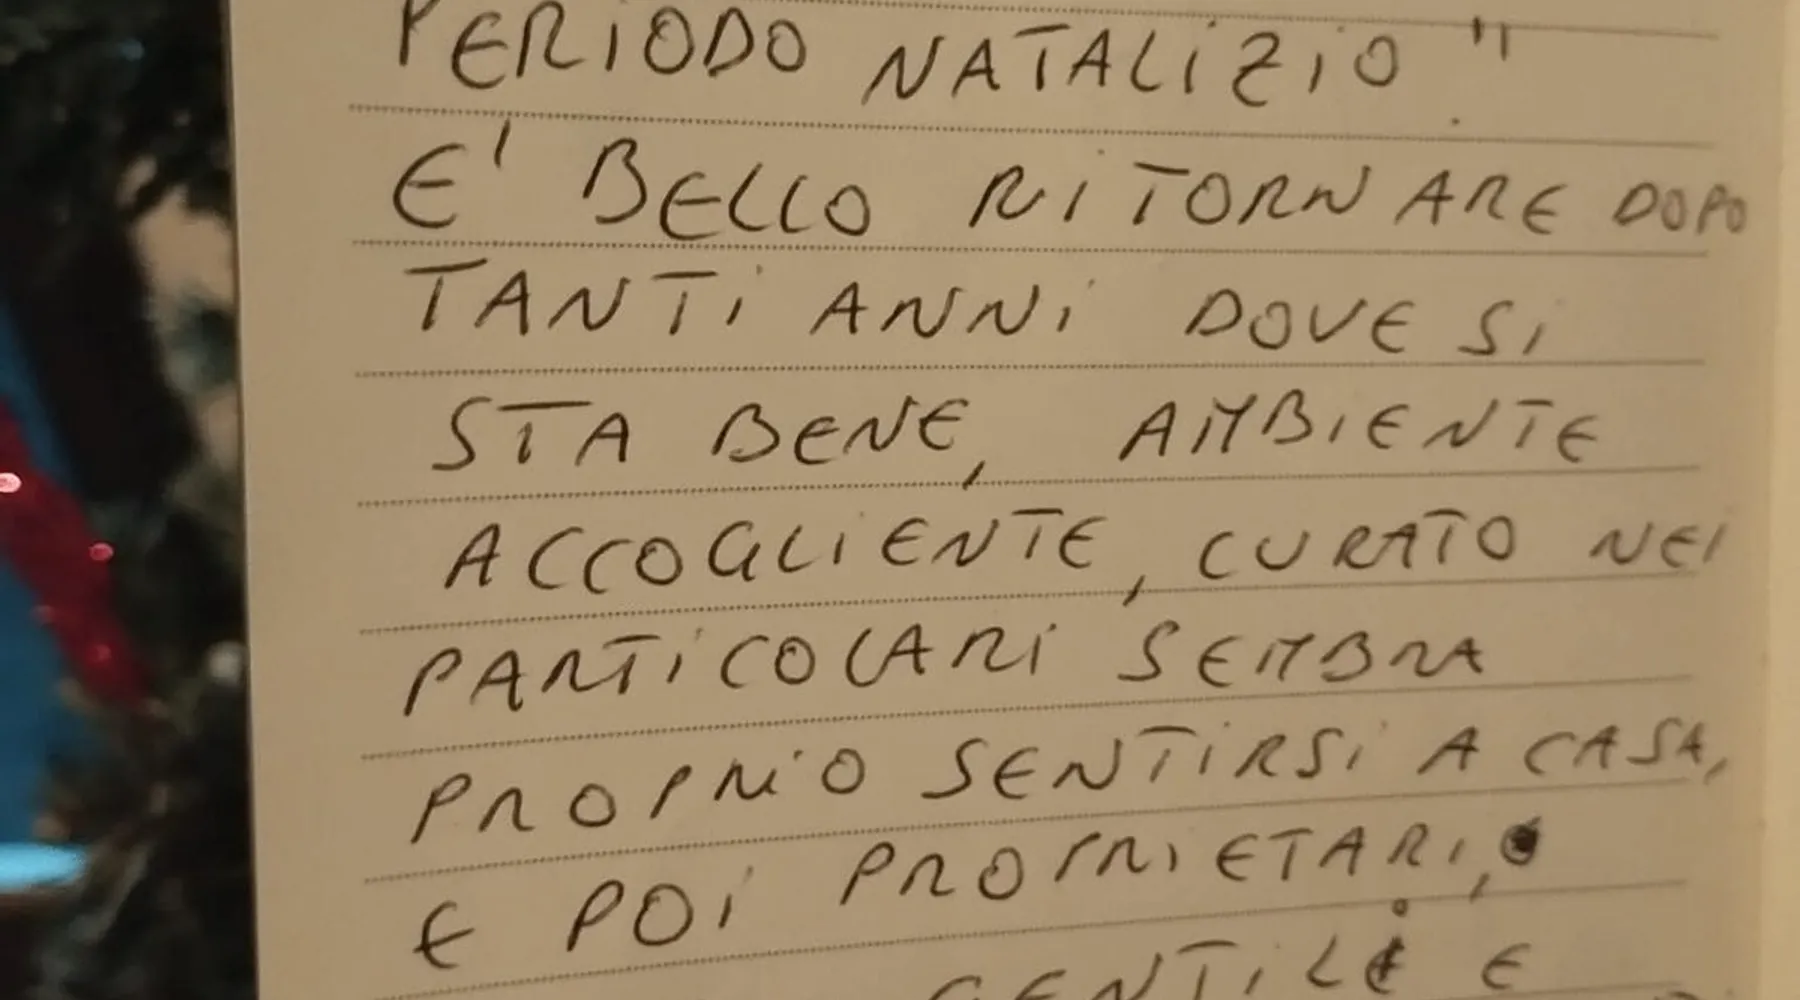 PERIODO NATALIZIO".
E' BELLO RITORNARE DOPO
TANTI ANNI DOVE SI
STA BENE, AMBIENTE
ACCOGLIENTE, CURATO NEI
PARTICOLARI SEMBRA
PROPRIO SENTIRSI A CASA,
E POI PROPRIETARI,
GENTILI E